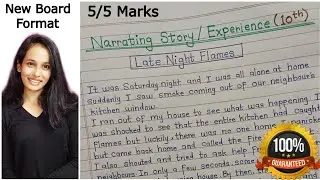 New Board
Format
5/5 Marks
Narrating Story/Experience (10th)
Late Night Flames
It was Saturday night and I was all alone at home
suddenly I saw smoke coming out of our neighbour's
kitchen window.
I ran out of my house to see what was happening. I
was shocked to see that the entire kitchen had caught
Flames but luckily, there was no one home. I
but came back home and called the Fire
I also shouted and tried to ask help
neighbours. In only a few seconds, some
house. By then, the
100%
GUARANTEED